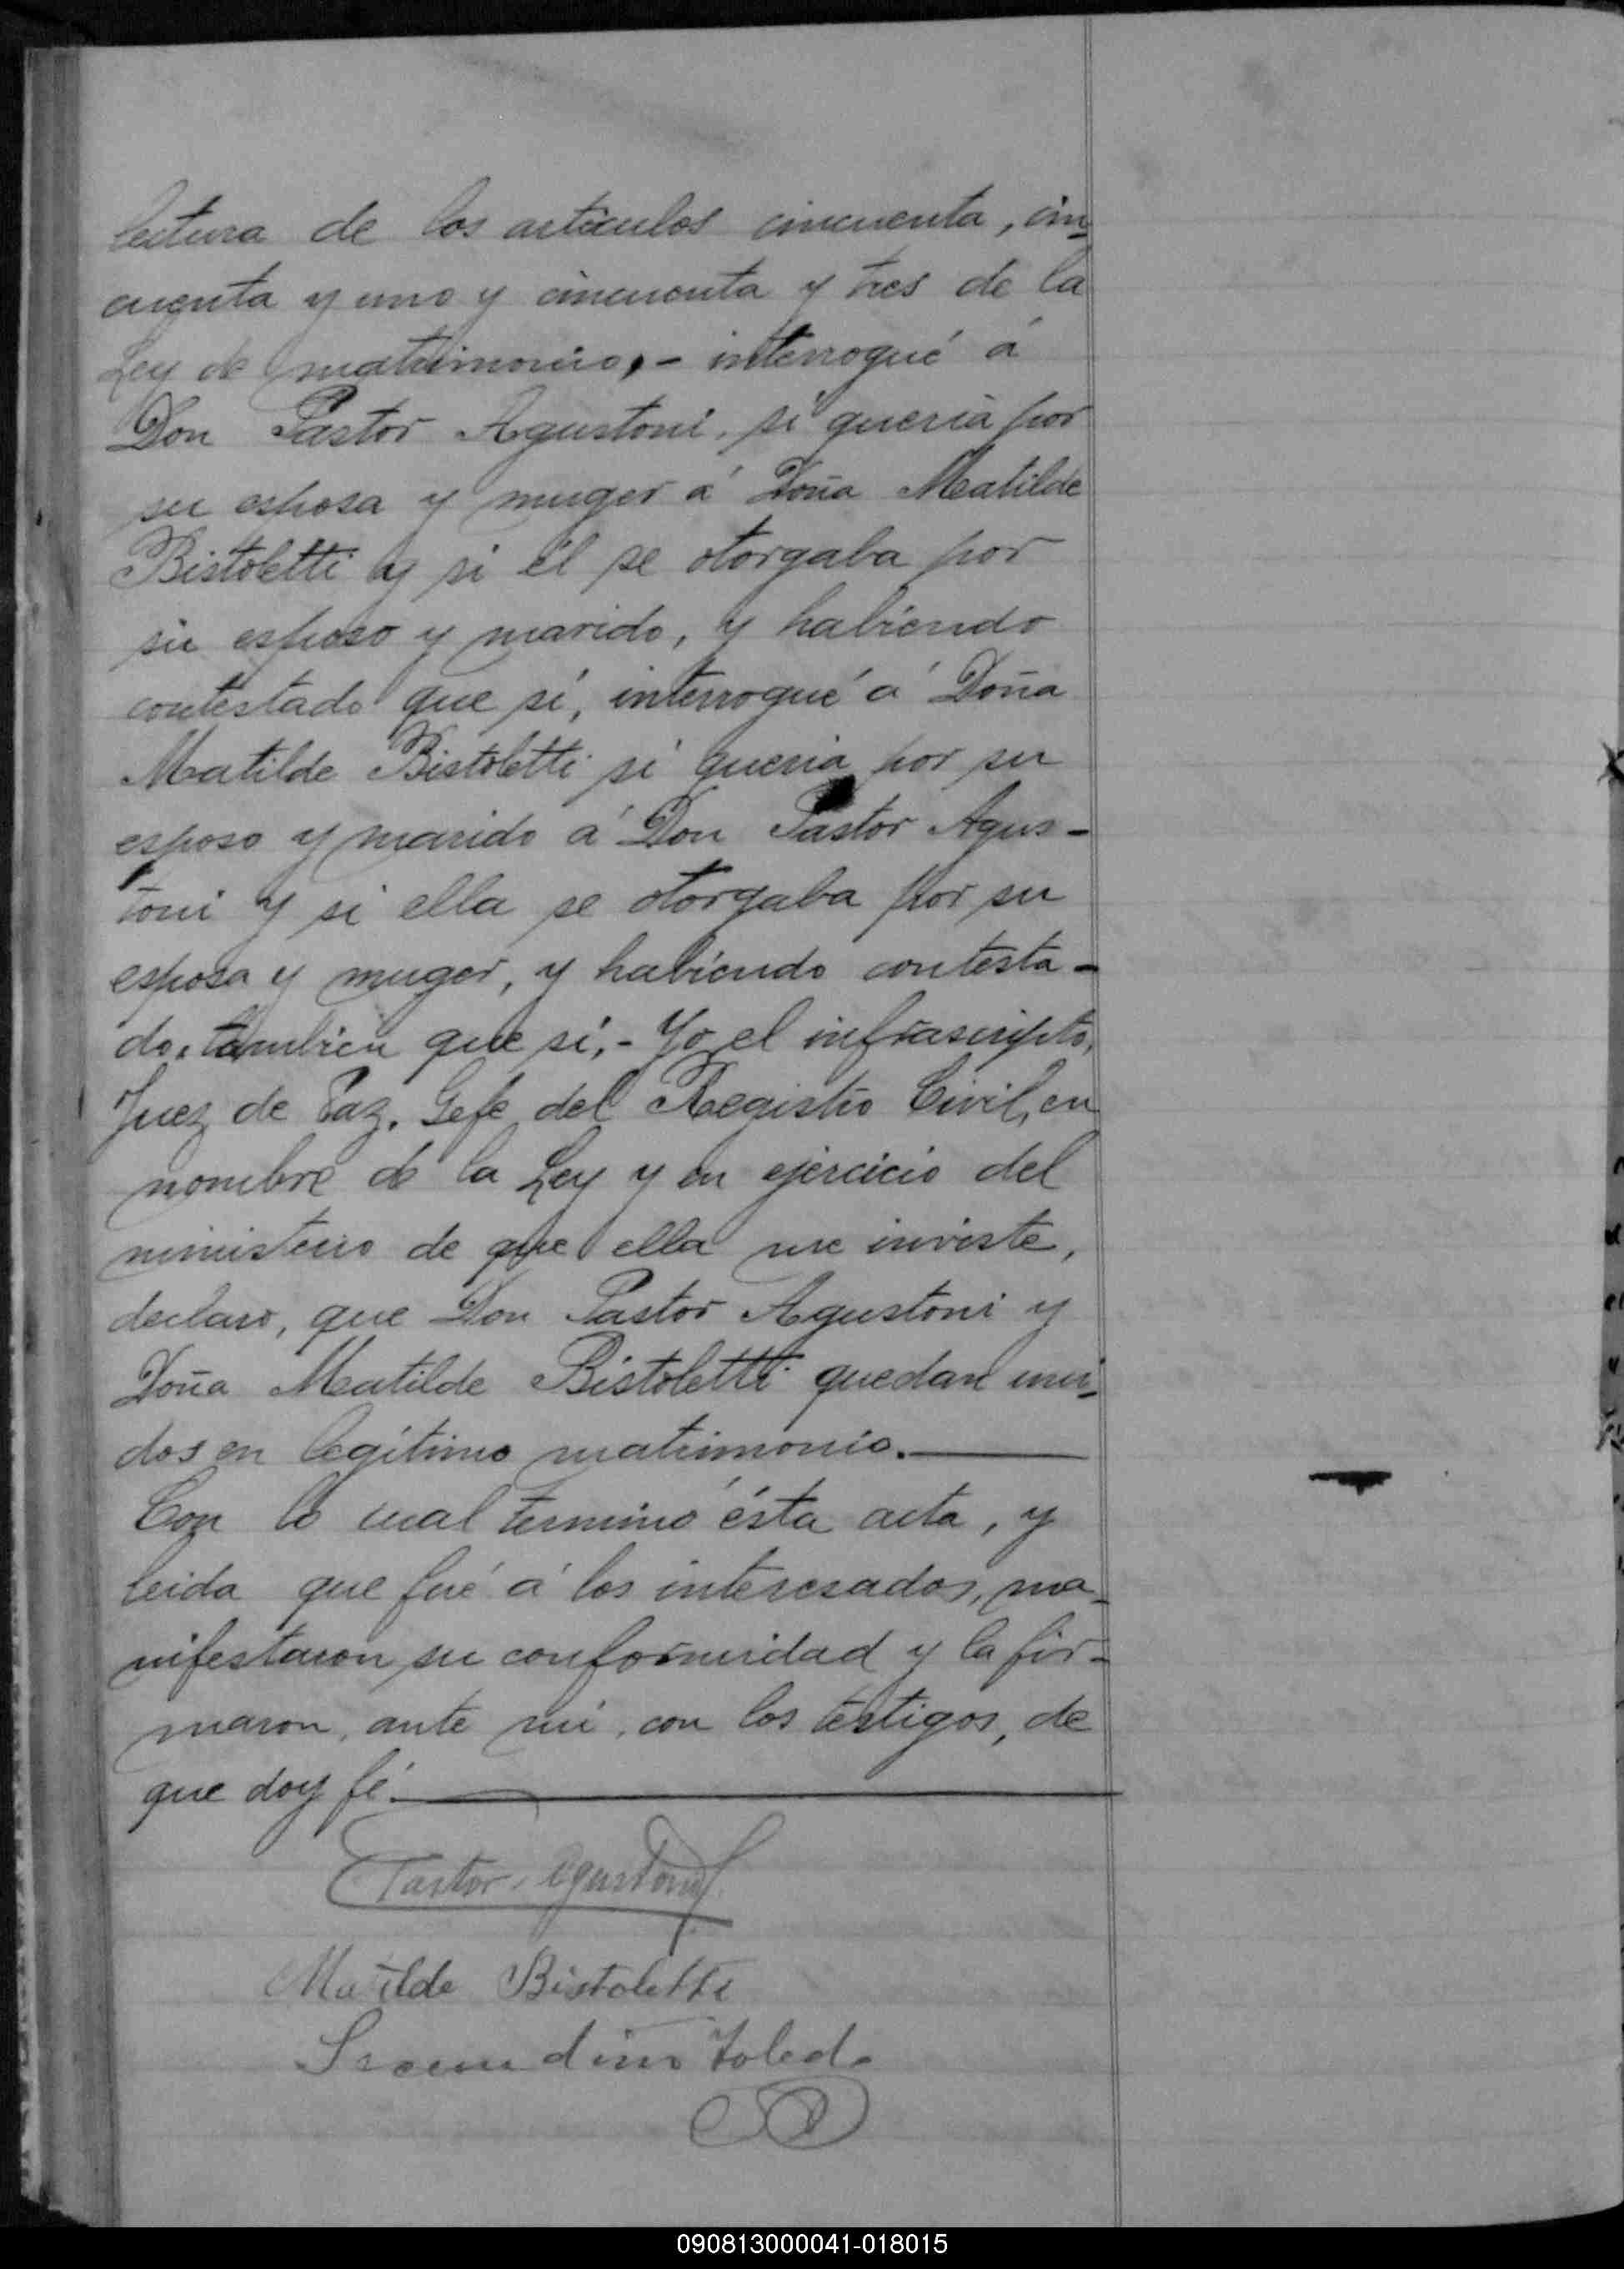 lectura de los artículos cincuenta, cin-
cuenta y uno y cincuenta y tres de la
Ley de matrimonio,- interrogué á
Don Pastor Agustoni, si queria por
su esposa y muger á Doña Matilde
Bistoletti y si él se otorgaba por
su esposo y marido, y habiendo
contestado que sí, interrogué á Doña
Matilde Bistoletti si queria por su
esposo y marido á Don Pastor Agus-
toni y si ella se otorgaba por su
esposa y muger, y habiendo contesta-
do, tambien que sí,- Yo, el infrascripto,
Juez de Paz, Gefe del Registro Civil, en
nombre de la Ley y en ejercicio del
ministerio de que ella me inviste,
declaro, que Don Pastor Agustoni y
Doña Matilde Bistoletti quedan uni-
dos en legítimo matrimonio.
Con lo cual terminó ésta acta, y
leida que fué á los interesados, ma-
nifestaron su conformidad y la fir-
maron, ante mí, con los testigos, de
que doy fé.
Pastor Agustoni
Matilde Bistoletti
Secundino Toledo
090813000041-018015